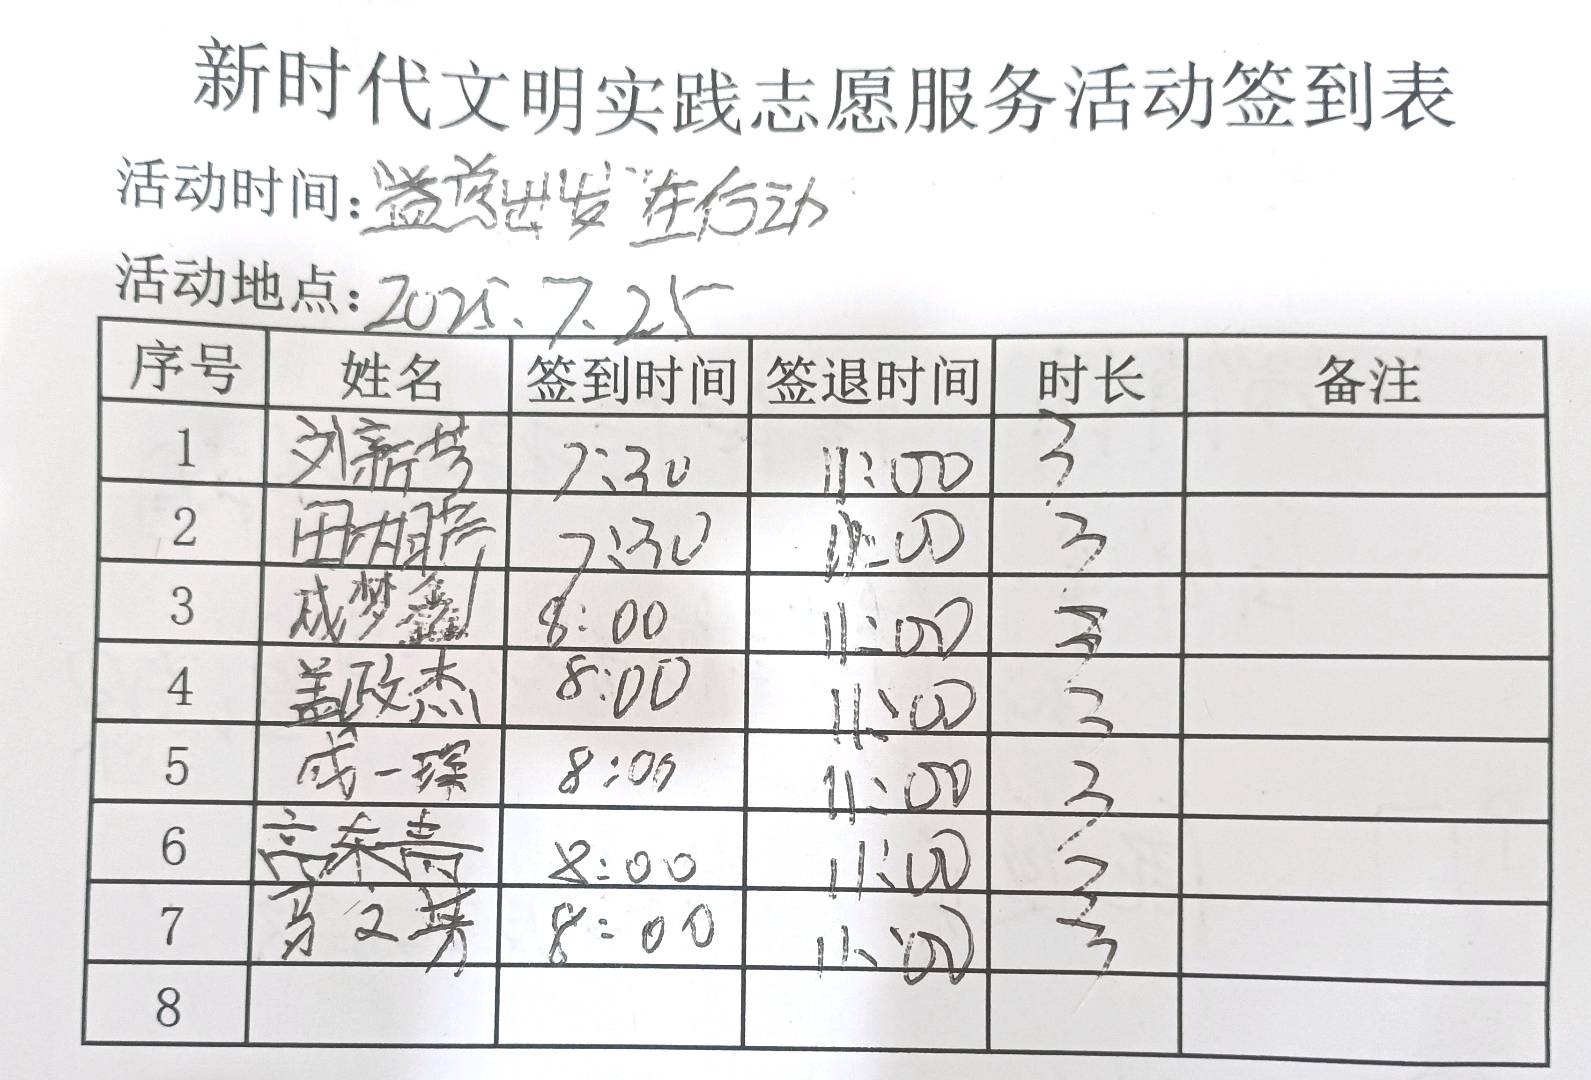 新时代文明实践志愿服务活动签到表
活动时间:益苗出发 在行动
活动地点:2025.7.25
序号 姓名 签到时间 签退时间 时长 备注
1 刘新芳 7:30 11:00 3
2 田 7:30 11:00 3
3 成梦鑫 8:00 11:00 3
4 盖政杰 8:00 11:00 3
5 成一琛 8:00 11:00 3
6 高东青 8:00 11:00 3
7 马文芳 8:00 11:00 3
8